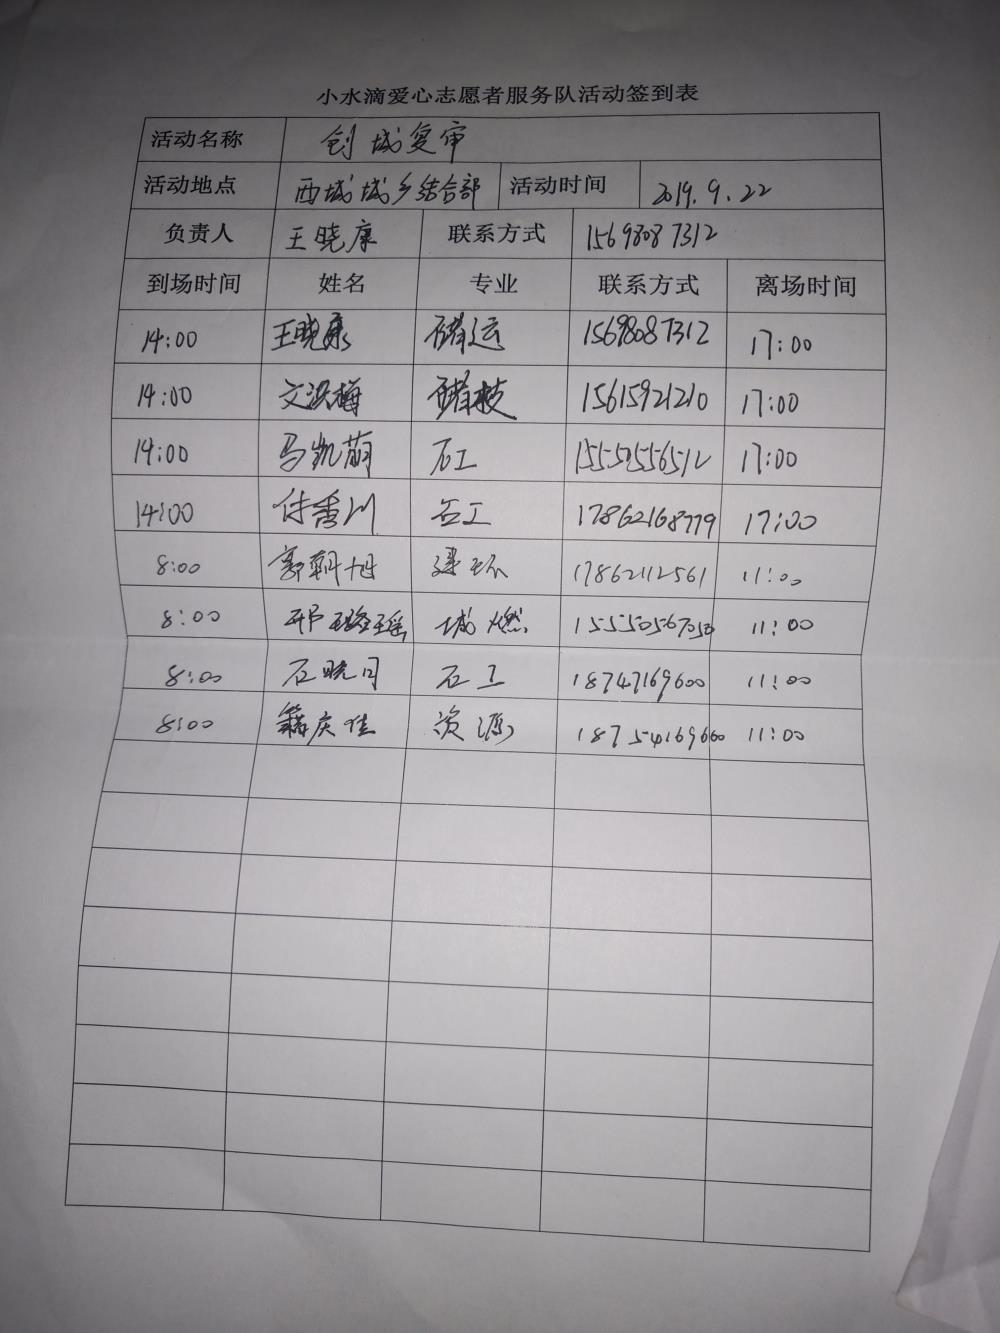 小水滴爱心志愿者服务队活动签到表
活动名称 创城复审
活动地点 西城城乡结合部 活动时间 2019.9.22
负责人 王晓康 联系方式 15698087312
到场时间 姓名 专业 联系方式 离场时间
14:00 王晓康 储运 15698087312 17:00
14:00 文洪梅 储 15615921210 17:00
14:00 马凯萌 石工 15552556512 17:00
14:00 付香川 石工 17862168779 17:00
8:00 郭朝旭 建环 17862112561 11:00
8:00 邢璐瑶 城燃 11:00
8:00 石晓月 石工 18747169600 11:00
8:00 籍庆佳 资源 18754169660 11:00